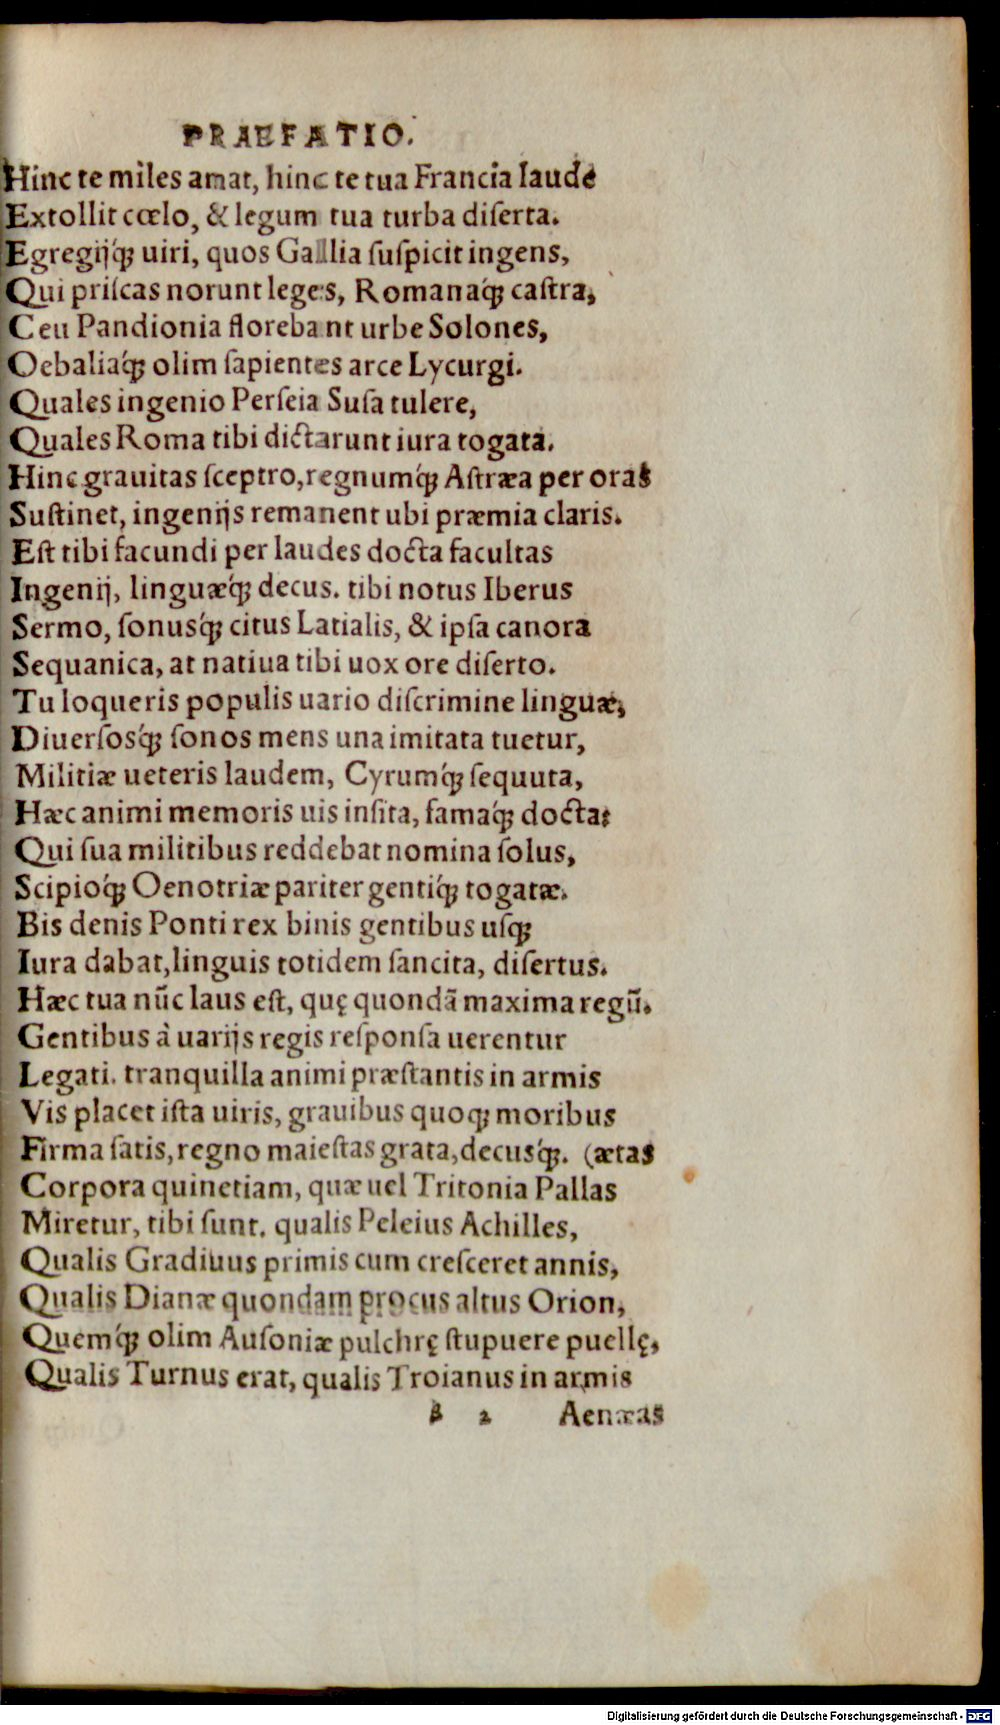 PRAEFATIO.
Hinc te miles amat, hinc te tua Francia laude
Extollit cœlo, & legum tua turba diſerta.
Egregijq́; uiri, quos Gallia ſuſpicit ingens,
Qui priſcas norunt leges, Romanaq́; caſtra,
Ceu Pandionia florebant urbe Solones,
Oebaliaq́; olim ſapientes arce Lycurgi.
Quales ingenio Perſeia Suſa tulere,
Quales Roma tibi dictarunt iura togata.
Hinc grauitas ſceptro, regnumq́; Aſtræa per oras
Suſtinet, ingenijs remanent ubi præmia claris.
Eſt tibi facundi per laudes docta facultas
Ingenij, linguæq́; decus. tibi notus Iberus
Sermo, ſonusq́; citus Latialis, & ipſa canora
Sequanica, at natiua tibi uox ore diſerto.
Tu loqueris populis uario diſcrimine linguæ,
Diuerſosq́; ſonos mens una imitata tuetur,
Militiæ ueteris laudem, Cyrumq́; ſequuta,
Hæc animi memoris uis inſita, famaq́; docta:
Qui ſua militibus reddebat nomina ſolus,
Scipioq́; Oenotriæ pariter gentiq́; togatæ.
Bis denis Ponti rex binis gentibus uſq;
Iura dabat, linguis totidem ſancita, diſertus.
Hæc tua nūc laus eſt, quę quondā maxima regū.
Gentibus à uarijs regis reſponſa uerentur
Legati. tranquilla animi præſtantis in armis
Vis placet iſta uiris, grauibus quoq; moribus
Firma ſatis, regno maieſtas grata, decusq́;. (ætas
Corpora quinetiam, quæ uel Tritonia Pallas
Miretur, tibi ſunt. qualis Peleius Achilles,
Qualis Gradiuus primis cum creſceret annis,
Qualis Dianæ quondam procus altus Orion,
Quemq́; olim Auſoniæ pulchrę ſtupuere puellę,
Qualis Turnus erat, qualis Troianus in armis
β 2 Aenæas
Digitalisierung gefördert durch die Deutsche Forschungsgemeinschaft - DFG